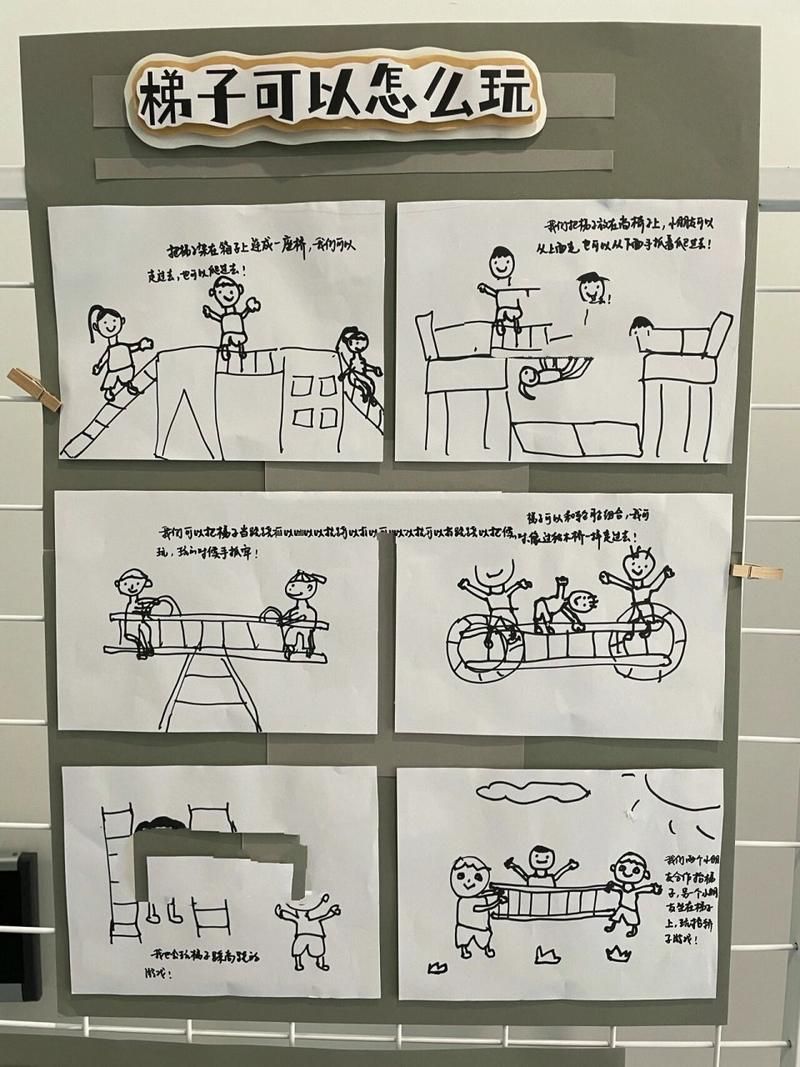 梯子可以怎么玩
把梯子架在箱子上连成一座桥，我们可以
走过去，也可以爬过去！
我们把梯子放在两椅子上，小朋友可以
从上面走，也可以从下面手抓着爬过去！
我们可以把梯子当跷跷
玩，玩的时候手抓牢！
梯子可以和轮胎组合，我可
像过独木桥一样走过去！
我也会玩梯子跳高跳的
游戏！
我们两个小朋
友合作抬梯
子，另一个小朋
友坐在梯子
上，玩抬轿
子游戏！